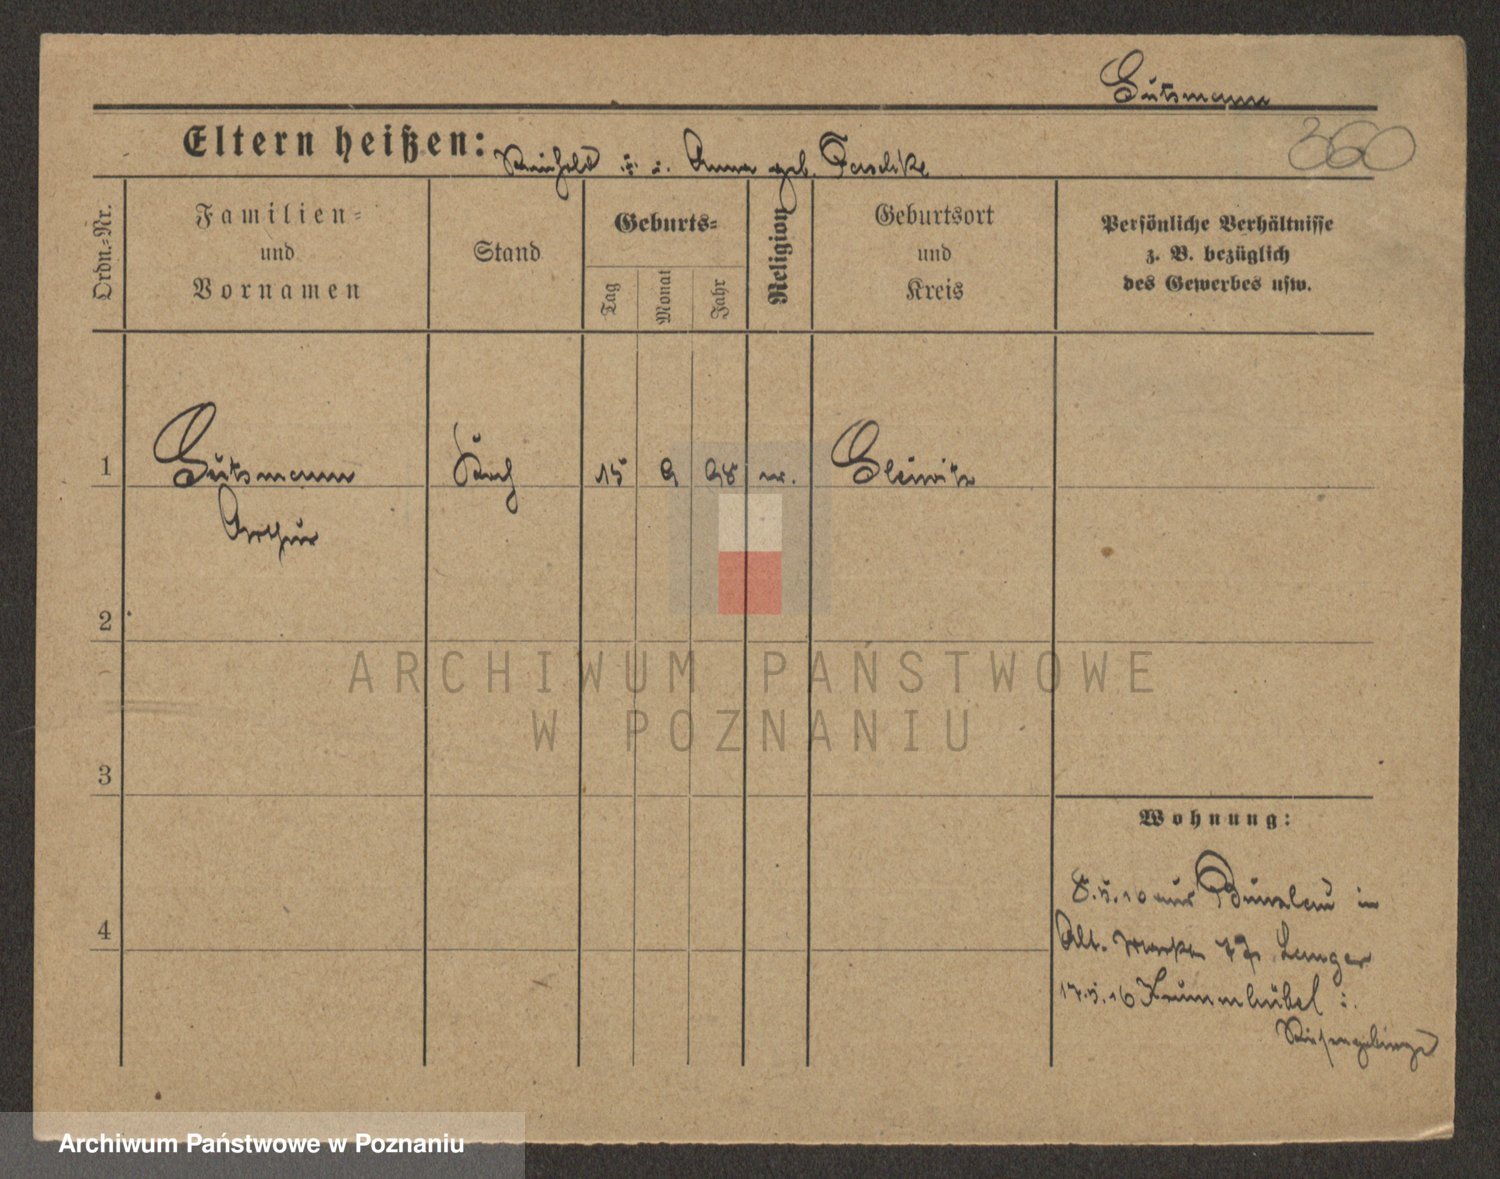 Gutsmann
360
Eltern heißen: Reinhold u. Anna geb.
Ordn.=Nr.
Familien=
und
Vornamen
Stand
Geburts=
Tag
Monat
Jahr
Religion
Geburtsort
und
Kreis
Persönliche Verhältnisse
z. B. bezüglich
des Gewerbes usw.
1 Gutsmann Koch 15 9 98 Gleiwitz
Arthur
2
3
4
Wohnung:
in
Alt. Langer
17.5.16 Krummhübel i.
Riesengebirge
ARCHIWUM PAŃSTWOWE
W POZNANIU
Archiwum Państwowe w Poznaniu